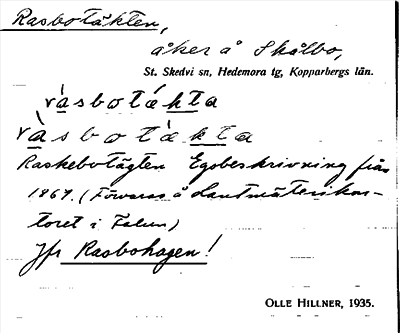 Rasbotäkten,
åker å Skålbo,
St. Skedvi sn, Hedemora tg, Kopparbergs län.
ràsbotákta
ràsbotákta
Raskebotägten Egobeskrivning från
1864. (Förvaras å Lantmäterikon-
toret i Falun)
Jfr Rasbohagen!
OLLE HILLNER, 1935.